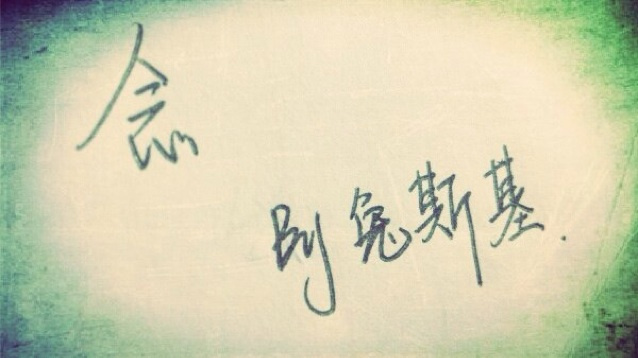 念
By 兔斯基.